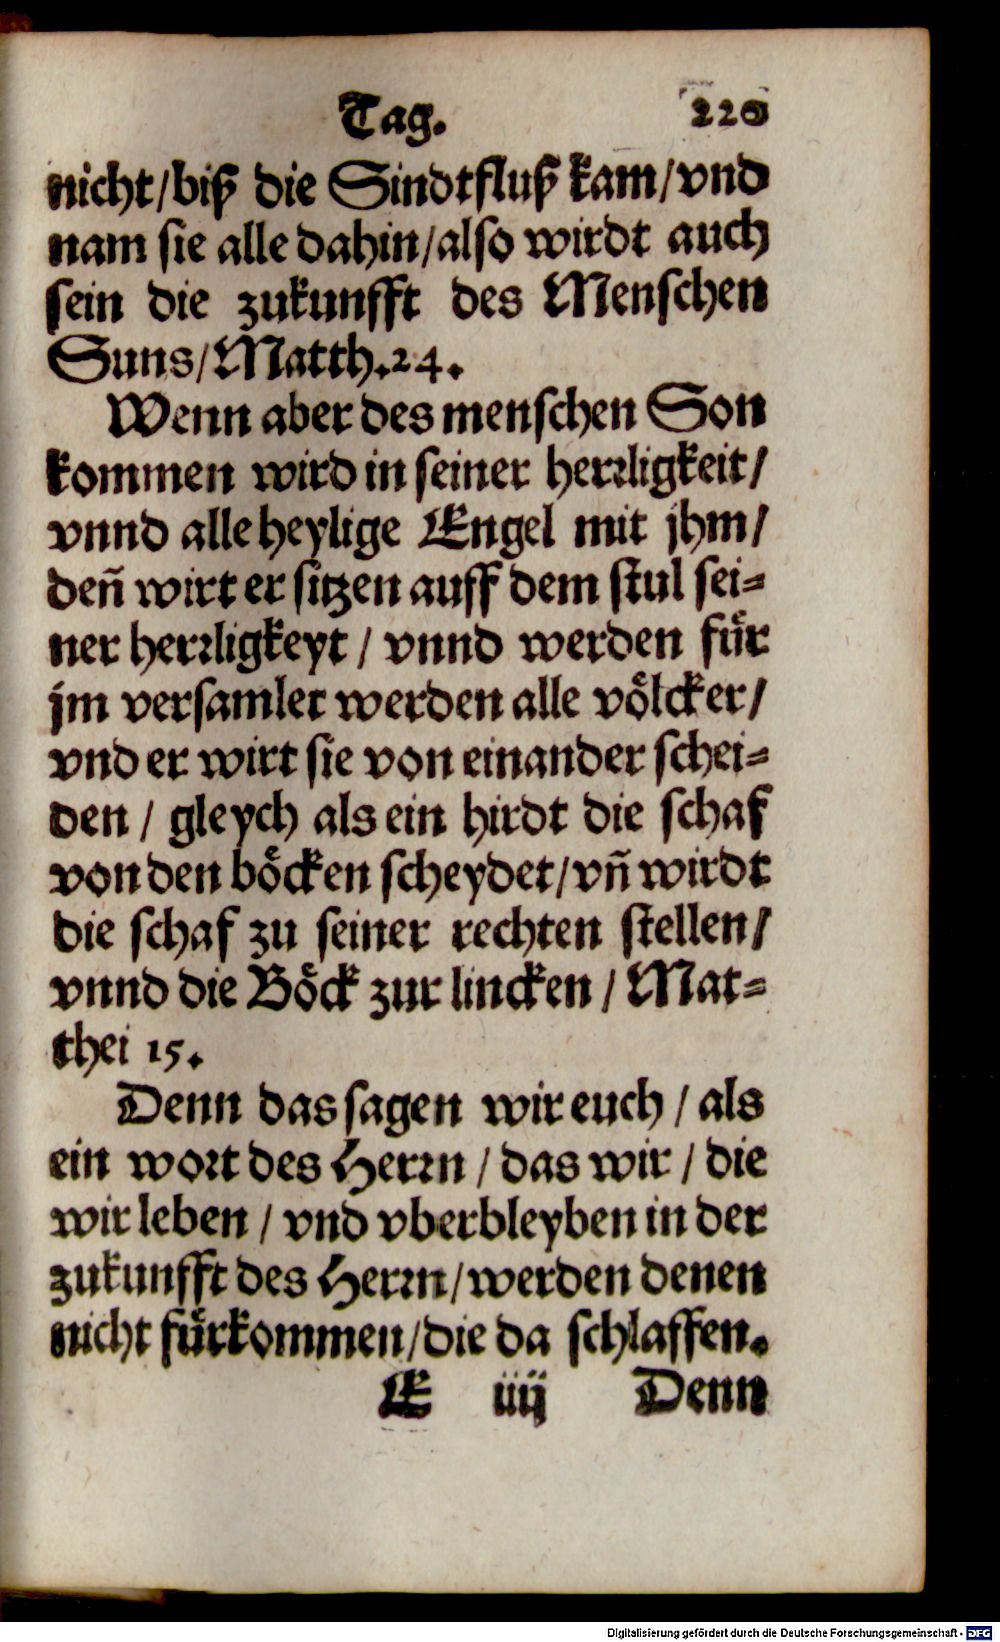 Tag. 220
nicht/biß die Sindtfluß kam/vnd
nam sie alle dahin/also wirdt auch
sein die zukunfft des Menschen
Suns/Matth.24.
Wenn aber des menschen Son
kommen wird in seiner herrligkeit/
vnnd alle heylige Engel mit jhm/
deñ wirt er sitzen auff dem stul sei=
ner herrligkeyt / vnnd werden fůr
jm versamlet werden alle vőlcker/
vnd er wirt sie von einander schei=
den / gleych als ein hirdt die schaf
von den bőcken scheydet/vñ wirdt
die schaf zu seiner rechten stellen/
vnnd die Bőck zur lincken / Mat=
thei 15.
Denn das sagen wir euch / als
ein wort des Herrn / das wir / die
wir leben / vnd vberbleyben in der
zukunfft des Herrn/werden denen
nicht fůrkommen/die da schlaffen.
E iiij Denn
Digitalisierung gefördert durch die Deutsche Forschungsgemeinschaft - DFG